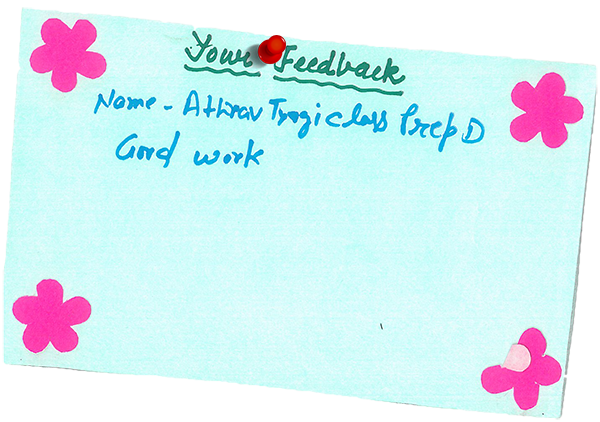 Your Feedback
Name - Athrav Tyagi class Prep D
Good work